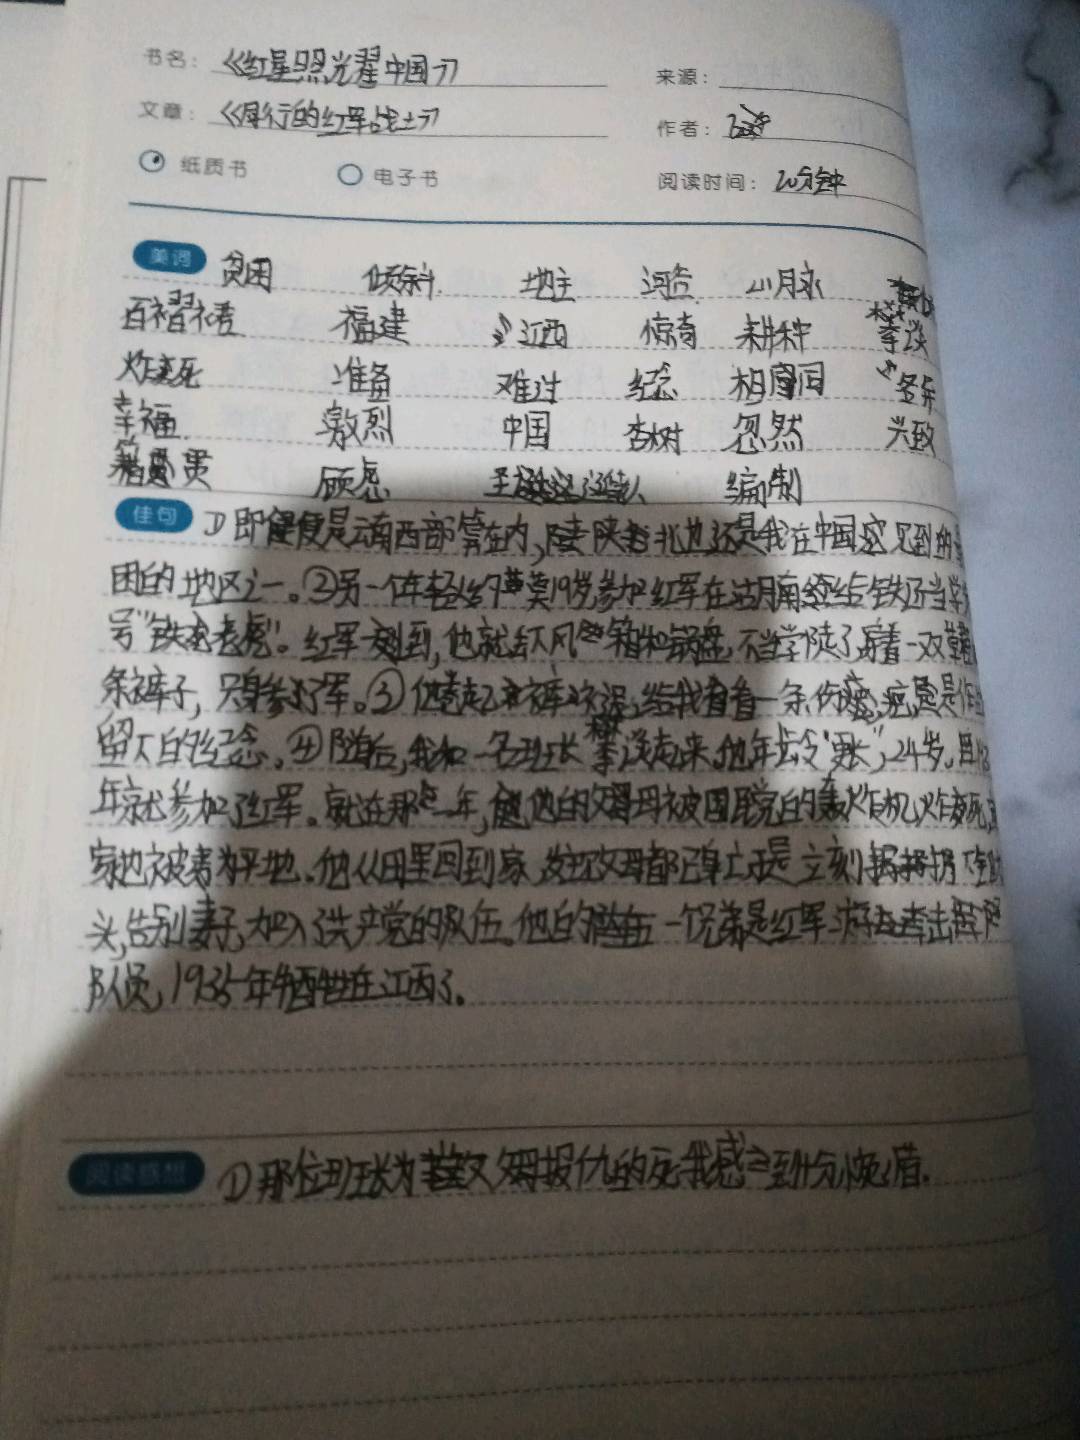 书名：《红星照光耀中国》 来源：
文章：《同行的红军战士》 作者：
纸质书 电子书 阅读时间：20分钟
美词 贫困 倾斜 地主 河谷 山脉
百褶裙 福建 江西 惊奇 耕种 攀谈
炸死 准备 难过 纪念 相同 各异
幸福 激烈 中国 杏树 忽然 兴致
籍贯 顾虑 编制
佳句 ①即便是云南西部算在内，陕北也还是我在中国见到的
困的地区之一。②另一个年轻约莫19岁参加红军在湖南给铁匠当学
号“铁老虎”。红军一到，他就丢下风箱和锅盘，不当学徒了，穿着一双草
条裤子，只身参了军。③他卷起裤，给我看看一条伤疤，疤是作
留下的纪念。④随后，我和一名班长攀谈起来，他年龄“更长”，24岁，
年就参加了红军。就在那一年，他的父母被国民党的轰炸机炸死，
家也被夷为平地。他从田里回到家，发现父母都已身亡于是立刻扔下
头，告别妻子，加入了共产党的队伍。他的一个兄弟是红军游击
队员，1935年牺牲在江西了。
阅读感想 ①那位班长为父母报仇的死我感到十分